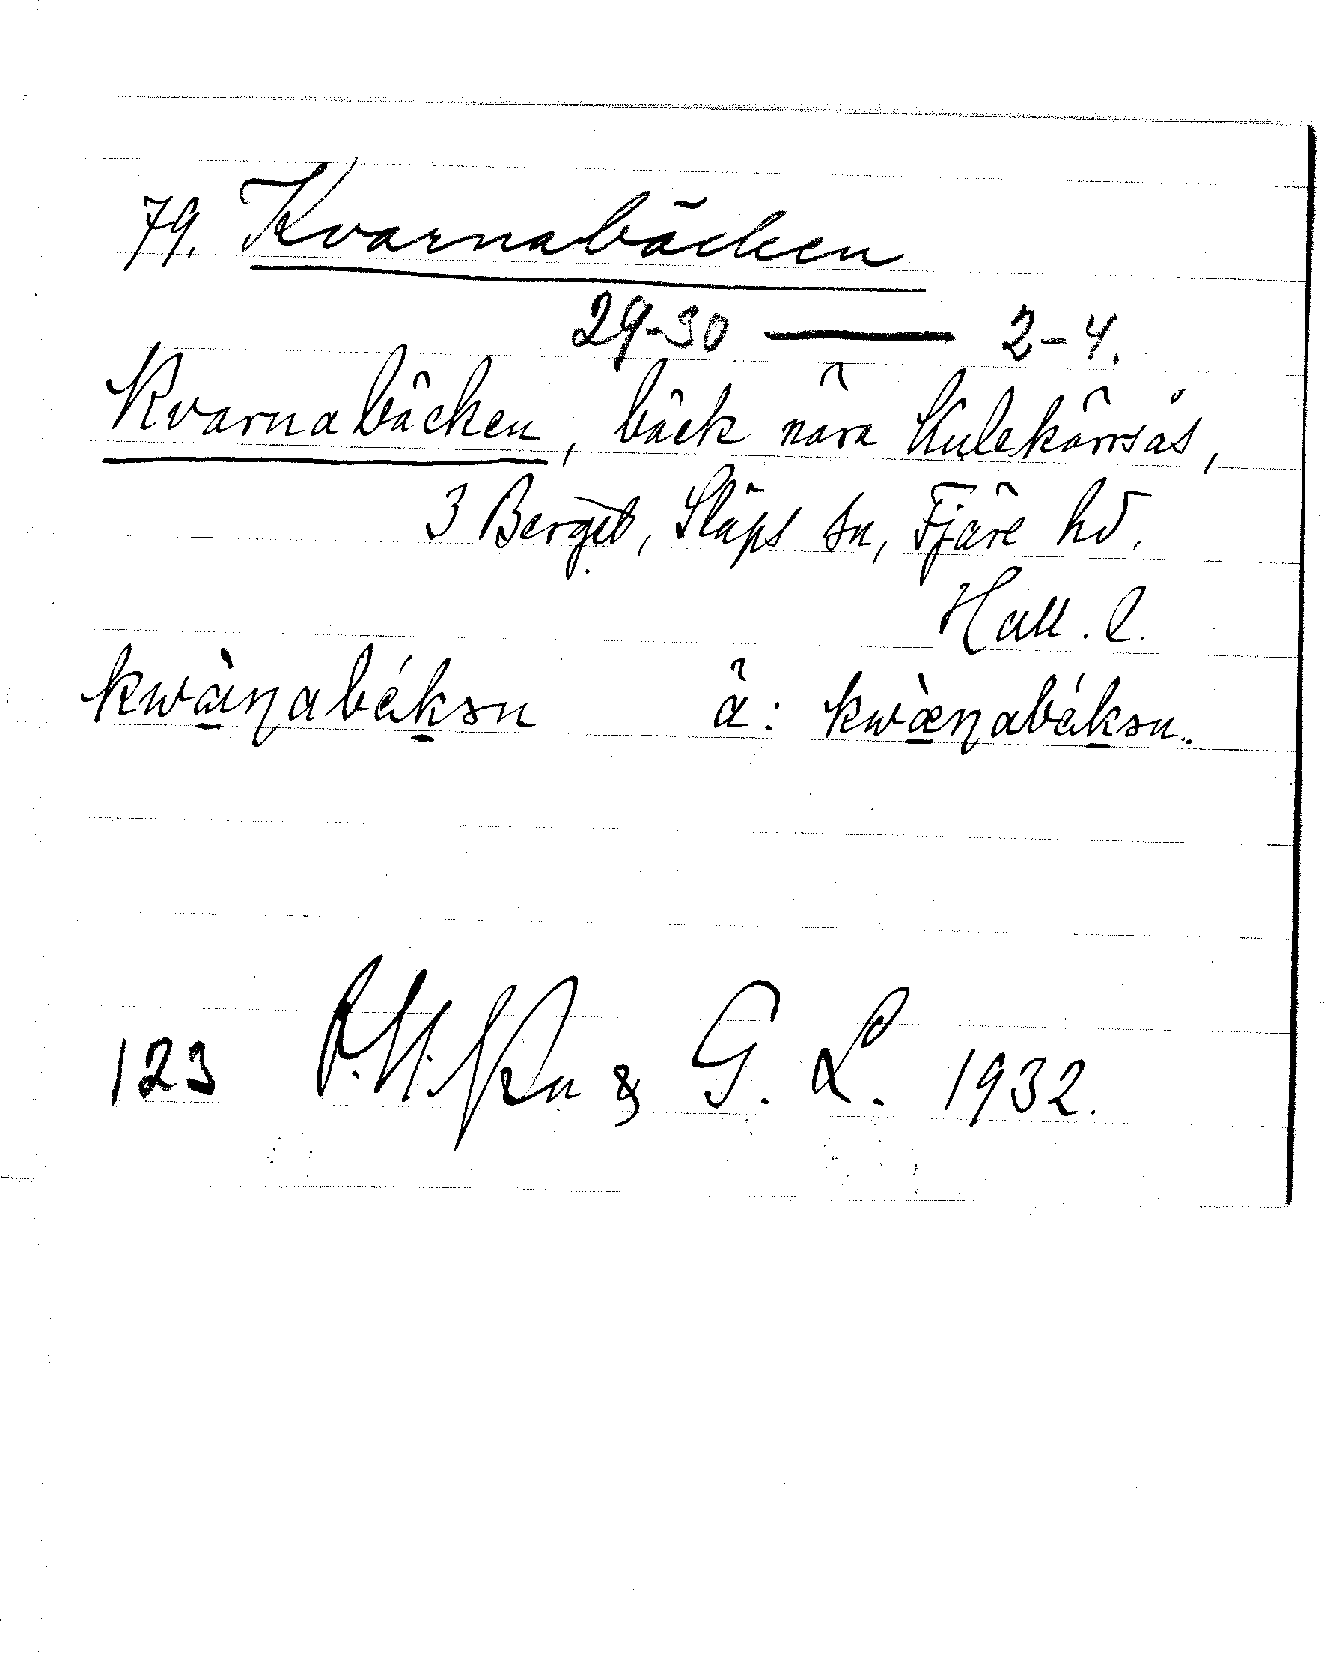 79. Kvarnabäcken
29-30 — 2-4.
Kvarnabäcken, bäck nära Kulekärrsås,
3 Berget, Släps sn, Fjäre hd.
Hall. l.
kwàɳabákən ä: kwæ̀ɳabákən.
123 & G. L. 1932.